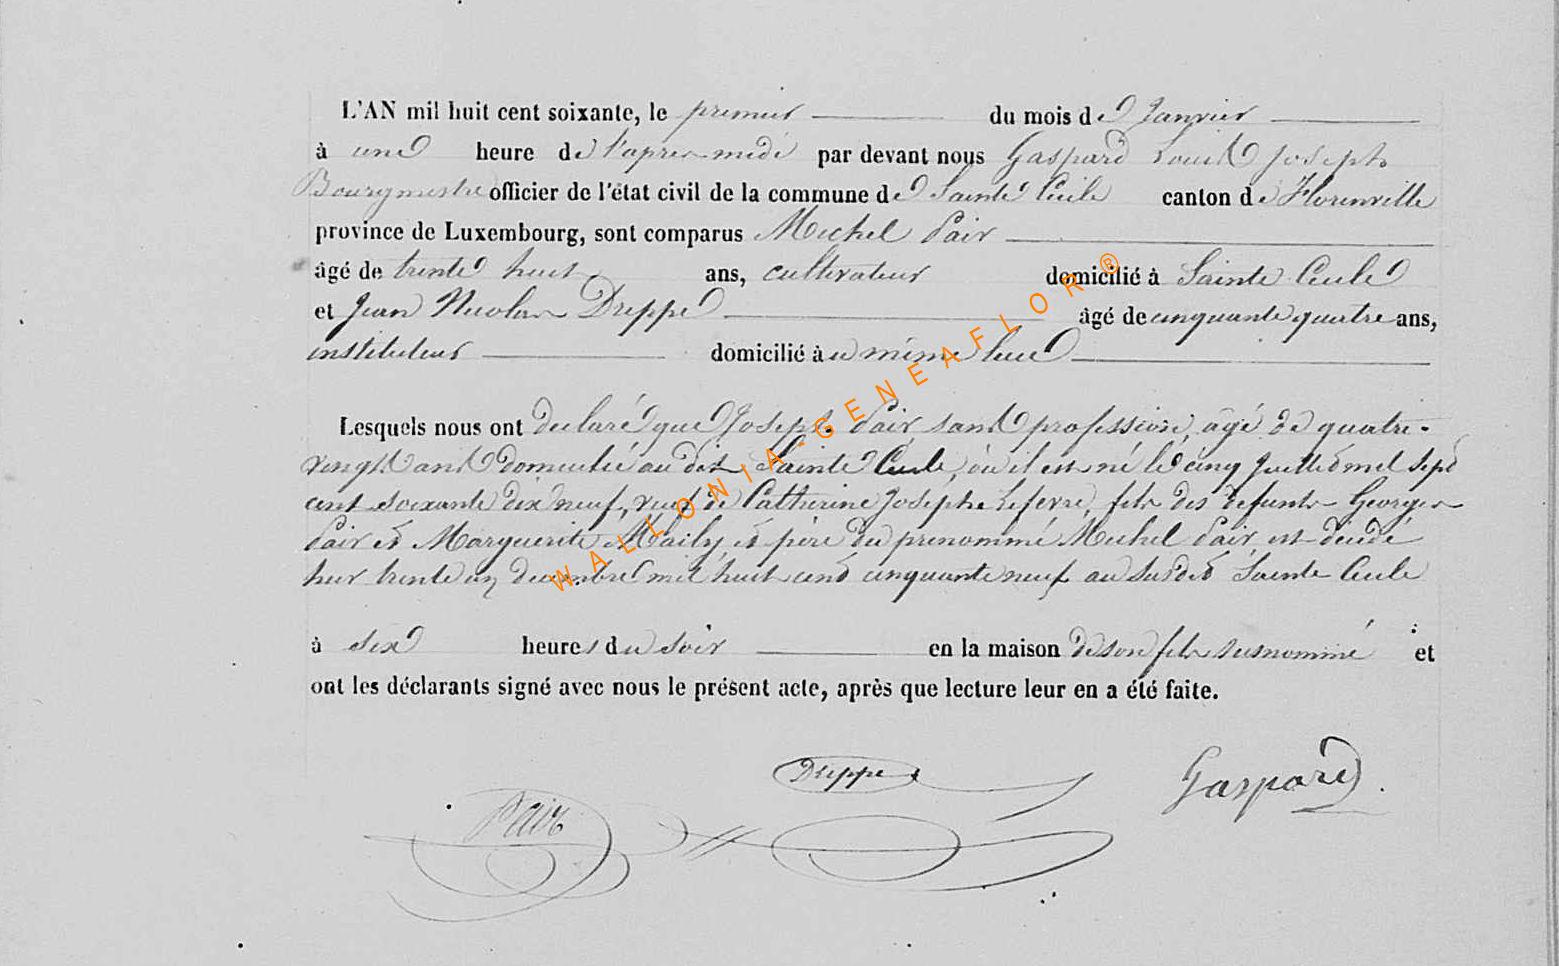 L'AN mil huit cent soixante, le premier du mois de Janvier
à une heure de l'après-midi par devant nous Gaspard Louis Joseph
Bourgmestre officier de l'état civil de la commune de Sainte Cécile canton de Florenville
province de Luxembourg, sont comparus Michel Pair
âgé de trente huit ans, cultivateur domicilié à Sainte Cécile
et Jean Nicolas Dreppe âgé de cinquante quatre ans,
instituteur domicilié au même lieu
Lesquels nous ont déclaré que Joseph Pair sans profession, âgé de quatre-
vingts ans domicilié au dit Sainte Cécile, où il est né le cinq Juillet mil sept
cent soixante dix neuf, veuf de Catherine Josephe Lefevre, fils des défunts Georges
Pair et Marguerite Mailly et père du prénommé Michel Pair est décédé
hier trente un décembre mil huit cent cinquante neuf au susdit Sainte Cécile
à six heures du soir en la maison de son fils susnommé et
ont les déclarants signé avec nous le présent acte, après que lecture leur en a été faite.
Dreppe
Gaspard
Pair
WALLONIA-GENEAFLOR®